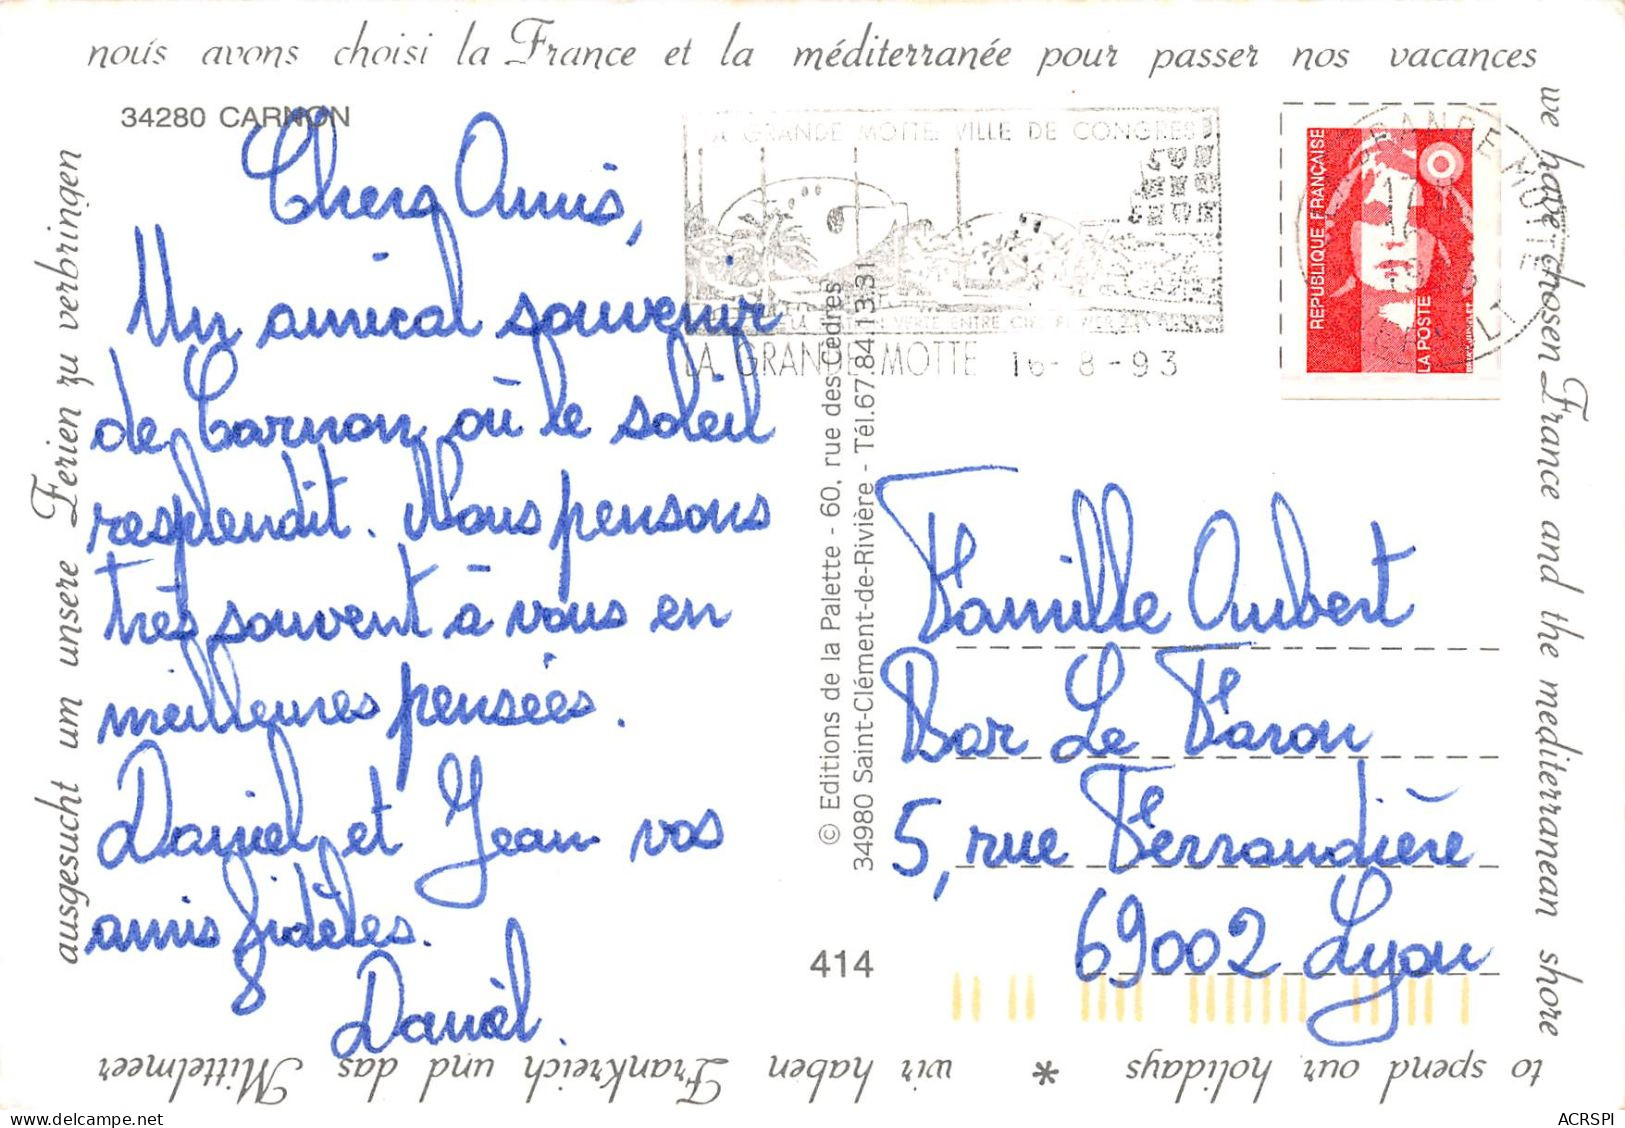 nous avons choisi la France et la méditerranée pour passer nos vacances
we have chosen France and the mediterranean shore
to spend our holidays * wir haben
ausgesucht um unsere Ferien zu verbringen
Frankreich und das Mittelmeer
34280 CARNON
Chers Amis,
Un amical souvenir
de Carnon où le soleil
resplendit. Nous pensons
très souvent à vous en
meilleures pensées.
Daniel et Jean vos
amis fidèles.
Danièl.
© Editions de la Palette - 60, rue des Cedres
34980 Saint-Clément-de-Rivière - Tél.67.84.13.31
414
A GRANDE MOTTE VILLE DE CONGRES
LA GRANDE MOTTE 16-8-93
REPUBLIQUE FRANÇAISE
LA POSTE
GRANDE MOTTE
Famille Aubert
Bar Le Faron
5, rue Ferrandière
69002 Lyon
ACRSPI